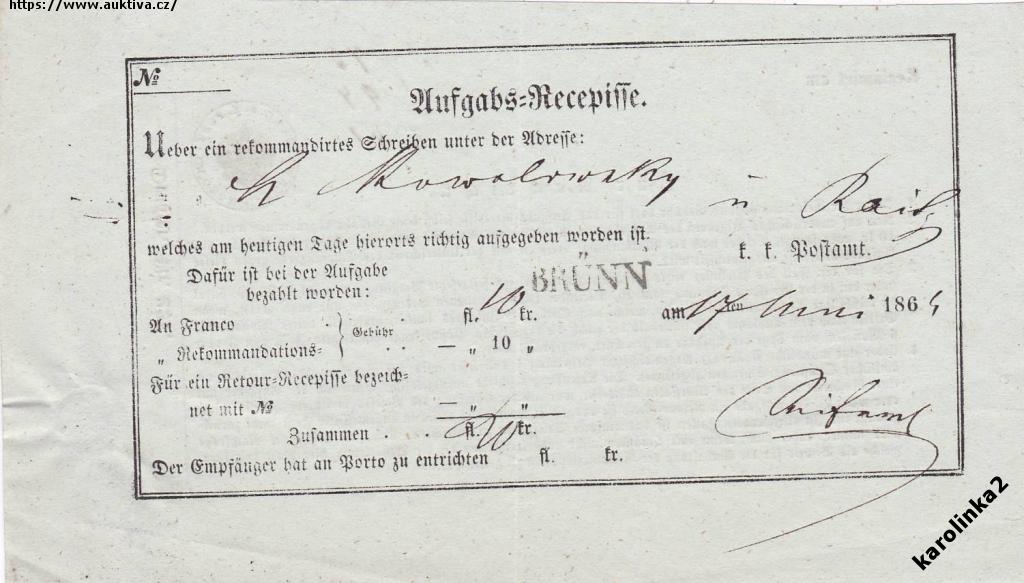 https://www.auktiva.cz/
№
Aufgabs-Recepisse.
Ueber ein rekommandirtes Schreiben unter der Adresse:
Kowalowsky
welches am heutigen Tage hierorts richtig aufgegeben worden ist.
k. k. Postamt.
Dafür ist bei der Aufgabe
bezahlt worden:
BRÜNN
An Franco . fl. 10 kr.
„ Rekommandations- Gebühr . . — „ 10 „
am 17ten Juni 186
Für ein Retour-Recepisse bezeich-
net mit № — „ „
Zusammen . . fl. 20 kr.
Der Empfänger hat an Porto zu entrichten fl. kr.
karolinka2